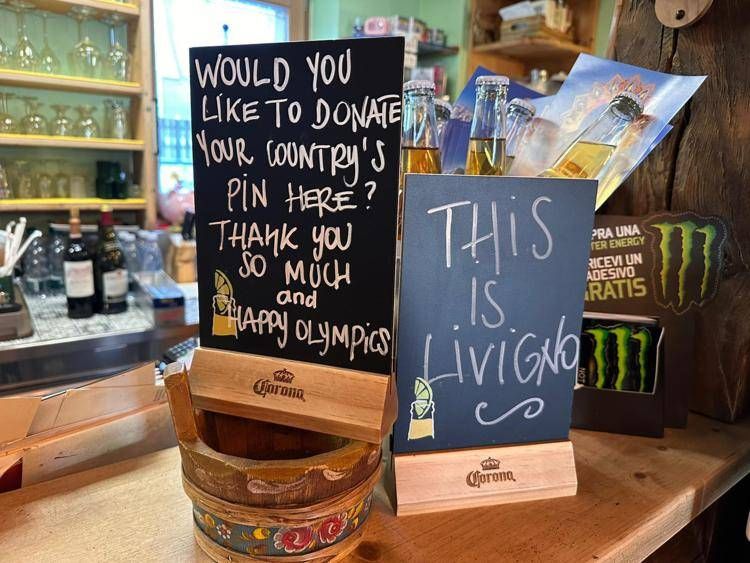 WOULD YOU
LIKE TO DONATE
YOUR COUNTRY'S
PIN HERE?
THANK YOU
SO MUCH
and
HAPPY OLYMPICS
Corona
THIS
IS
LIVIGNO
Corona
PRA UNA
TER ENERGY
RICEVI UN
ADESIVO
GRATIS